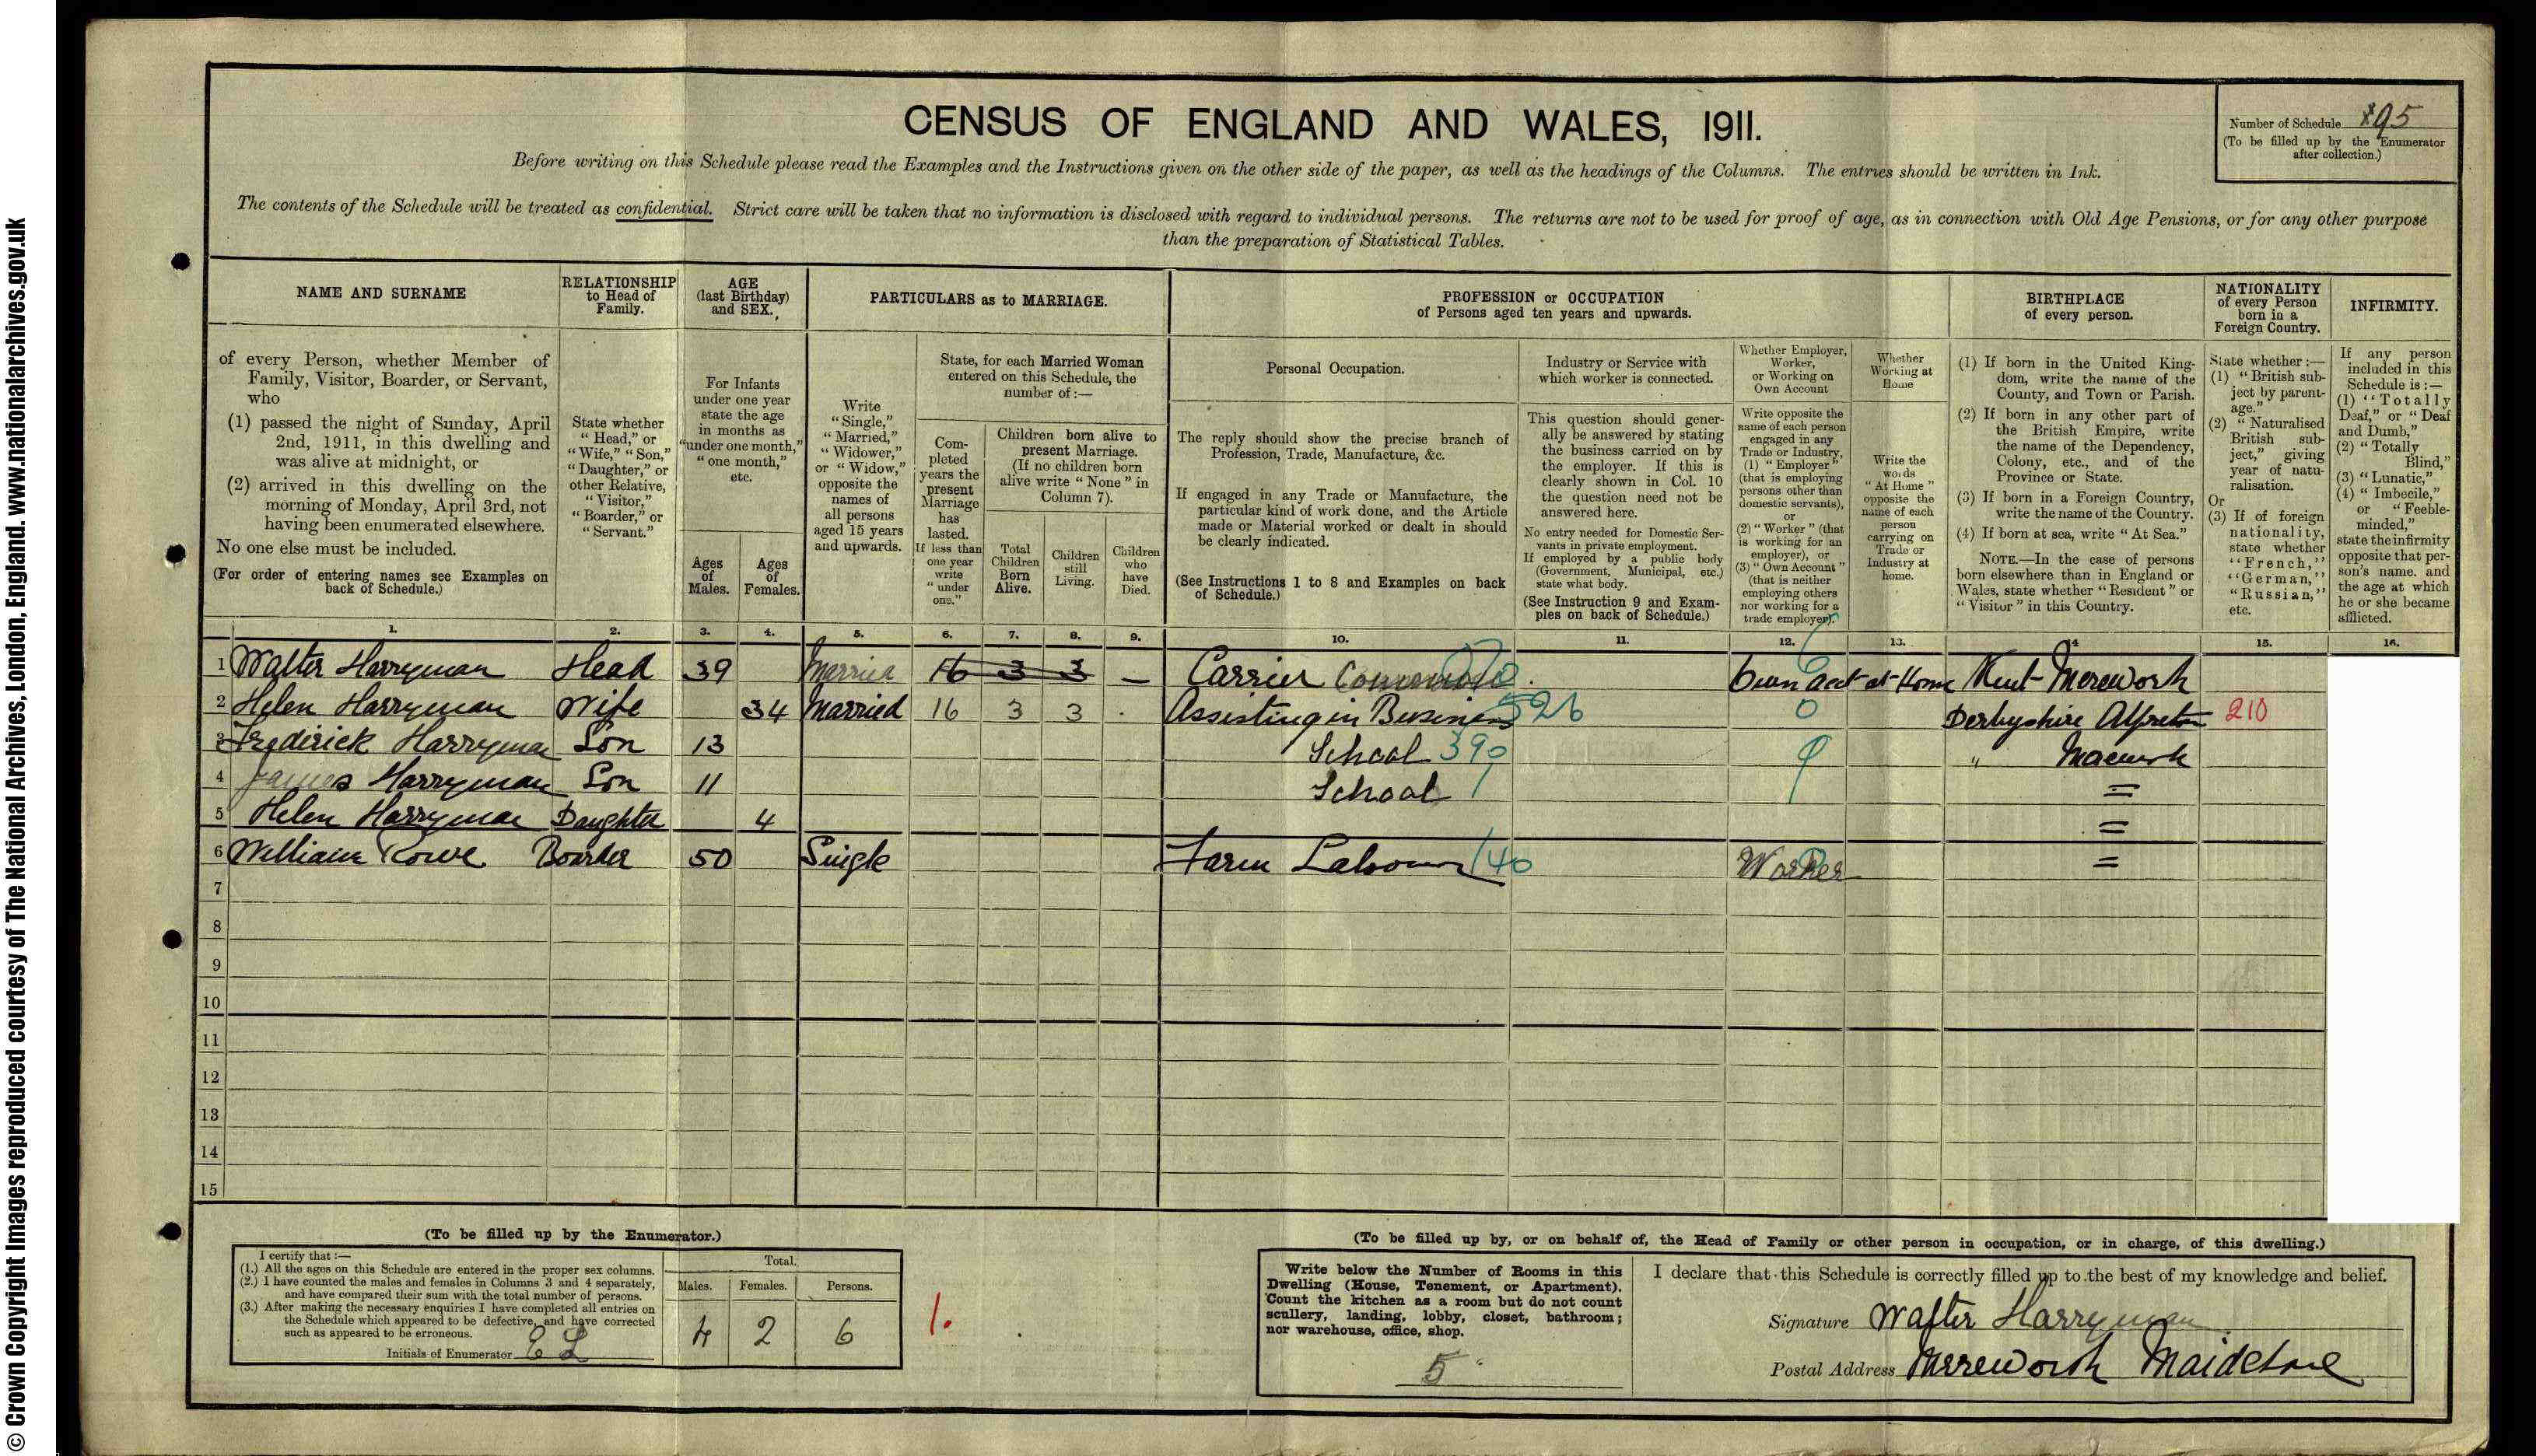 © Crown Copyright Images reproduced courtesy of The National Archives, London, England. www.nationalarchives.gov.uk
CENSUS OF ENGLAND AND WALES, 1911.
Number of Schedule 95
(To be filled up by the Enumerator
after collection.)
Before writing on this Schedule please read the Examples and the Instructions given on the other side of the paper, as well as the headings of the Columns. The entries should be written in Ink.
The contents of the Schedule will be treated as confidential. Strict care will be taken that no information is disclosed with regard to individual persons. The returns are not to be used for proof of age, as in connection with Old Age Pensions, or for any other purpose
than the preparation of Statistical Tables.
NAME AND SURNAME
of every Person, whether Member of
Family, Visitor, Boarder, or Servant,
who
(1) passed the night of Sunday, April
2nd, 1911, in this dwelling and
was alive at midnight, or
(2) arrived in this dwelling on the
morning of Monday, April 3rd, not
having been enumerated elsewhere.
No one else must be included.
(For order of entering names see Examples on
back of Schedule.)
RELATIONSHIP
to Head of
Family.
State whether
"Head," or
"Wife," "Son,"
"Daughter," or
other Relative,
"Visitor,"
"Boarder," or
"Servant."
AGE
(last Birthday)
and SEX.
For Infants
under one year
state the age
in months as
"under one month,"
"one month,"
etc.
Ages
of
Males.
Ages
of
Females.
PARTICULARS as to MARRIAGE.
Write
"Single,"
"Married,"
"Widower,"
or "Widow,"
opposite the
names of
all persons
aged 15 years
and upwards.
State, for each Married Woman
entered on this Schedule, the
number of:—
Com-
pleted
years the
present
Marriage
has
lasted.
If less than
one year
write
"under
one."
Children born alive to
present Marriage.
(If no children born
alive write "None" in
Column 7).
Total
Children
Born
Alive.
Children
still
Living.
Children
who
have
Died.
PROFESSION or OCCUPATION
of Persons aged ten years and upwards.
Personal Occupation.
The reply should show the precise branch of
Profession, Trade, Manufacture, &c.
If engaged in any Trade or Manufacture, the
particular kind of work done, and the Article
made or Material worked or dealt in should
be clearly indicated.
(See Instructions 1 to 8 and Examples on back
of Schedule.)
Industry or Service with
which worker is connected.
This question should gener-
ally be answered by stating
the business carried on by
the employer. If this is
clearly shown in Col. 10
the question need not be
answered here.
No entry needed for Domestic Ser-
vants in private employment.
If employed by a public body
(Government, Municipal, etc.)
state what body.
(See Instruction 9 and Exam-
ples on back of Schedule.)
Whether Employer,
Worker,
or Working on
Own Account
Write opposite the
name of each person
engaged in any
Trade or Industry,
(1) "Employer"
(that is employing
persons other than
domestic servants),
or
(2) "Worker" (that
is working for an
employer), or
(3) "Own Account"
(that is neither
employing others
nor working for a
trade employer).
Whether
Working at
Home
Write the
words
"At Home"
opposite the
name of each
person
carrying on
Trade or
Industry at
home.
BIRTHPLACE
of every person.
(1) If born in the United King-
dom, write the name of the
County, and Town or Parish.
(2) If born in any other part of
the British Empire, write
the name of the Dependency,
Colony, etc., and of the
Province or State.
(3) If born in a Foreign Country,
write the name of the Country.
(4) If born at sea, write "At Sea."
NOTE.—In the case of persons
born elsewhere than in England or
Wales, state whether "Resident" or
"Visitor" in this Country.
NATIONALITY
of every Person
born in a
Foreign Country.
State whether:—
(1) "British sub-
ject by parent-
age."
(2) "Naturalised
British sub-
ject," giving
year of natu-
ralisation.
Or
(3) If of foreign
nationality,
state whether
"French,"
"German,"
"Russian,"
etc.
INFIRMITY.
If any person
included in this
Schedule is:—
(1) "Totally
Deaf," or "Deaf
and Dumb,"
(2) "Totally
Blind,"
(3) "Lunatic,"
(4) "Imbecile,"
or "Feeble-
minded,"
state the infirmity
opposite that per-
son's name, and
the age at which
he or she became
afflicted.
1. 2. 3. 4. 5. 6. 7. 8. 9. 10. 11. 12. 13. 14 15. 16.
1 Walter Harryman Head 39 Married 16 3 3 — Carrier Own Acct at Home Kent Mereworth
2 Helen Harryman Wife 34 Married 16 3 3 Assisting in Business 526 0 Derbyshire Alfreton 210
3 Frederick Harryman Son 13 School 390 "
4 James Harryman Son 11 School =
5 Helen Harryman Daughter 4 =
6 William Rowe Boarder 50 Single Farm Labourer 140 Worker =
7
8
9
10
11
12
13
14
15
(To be filled up by the Enumerator.)
I certify that:—
(1.) All the ages on this Schedule are entered in the proper sex columns.
(2.) I have counted the males and females in Columns 3 and 4 separately,
and have compared their sum with the total number of persons.
(3.) After making the necessary enquiries I have completed all entries on
the Schedule which appeared to be defective, and have corrected
such as appeared to be erroneous.
Initials of Enumerator E L
Total.
Males. Females. Persons.
4 2 6
1.
(To be filled up by, or on behalf of, the Head of Family or other person in occupation, or in charge, of this dwelling.)
Write below the Number of Rooms in this
Dwelling (House, Tenement, or Apartment).
Count the kitchen as a room but do not count
scullery, landing, lobby, closet, bathroom;
nor warehouse, office, shop.
5
I declare that this Schedule is correctly filled up to the best of my knowledge and belief.
Signature Walter Harryman
Postal Address Mereworth Maidstone